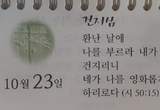 건지심
환난 날에
나를 부르라 내가
건지리니
네가 나를 영화롭게
하리로다 (시 50:15)
10월 23일